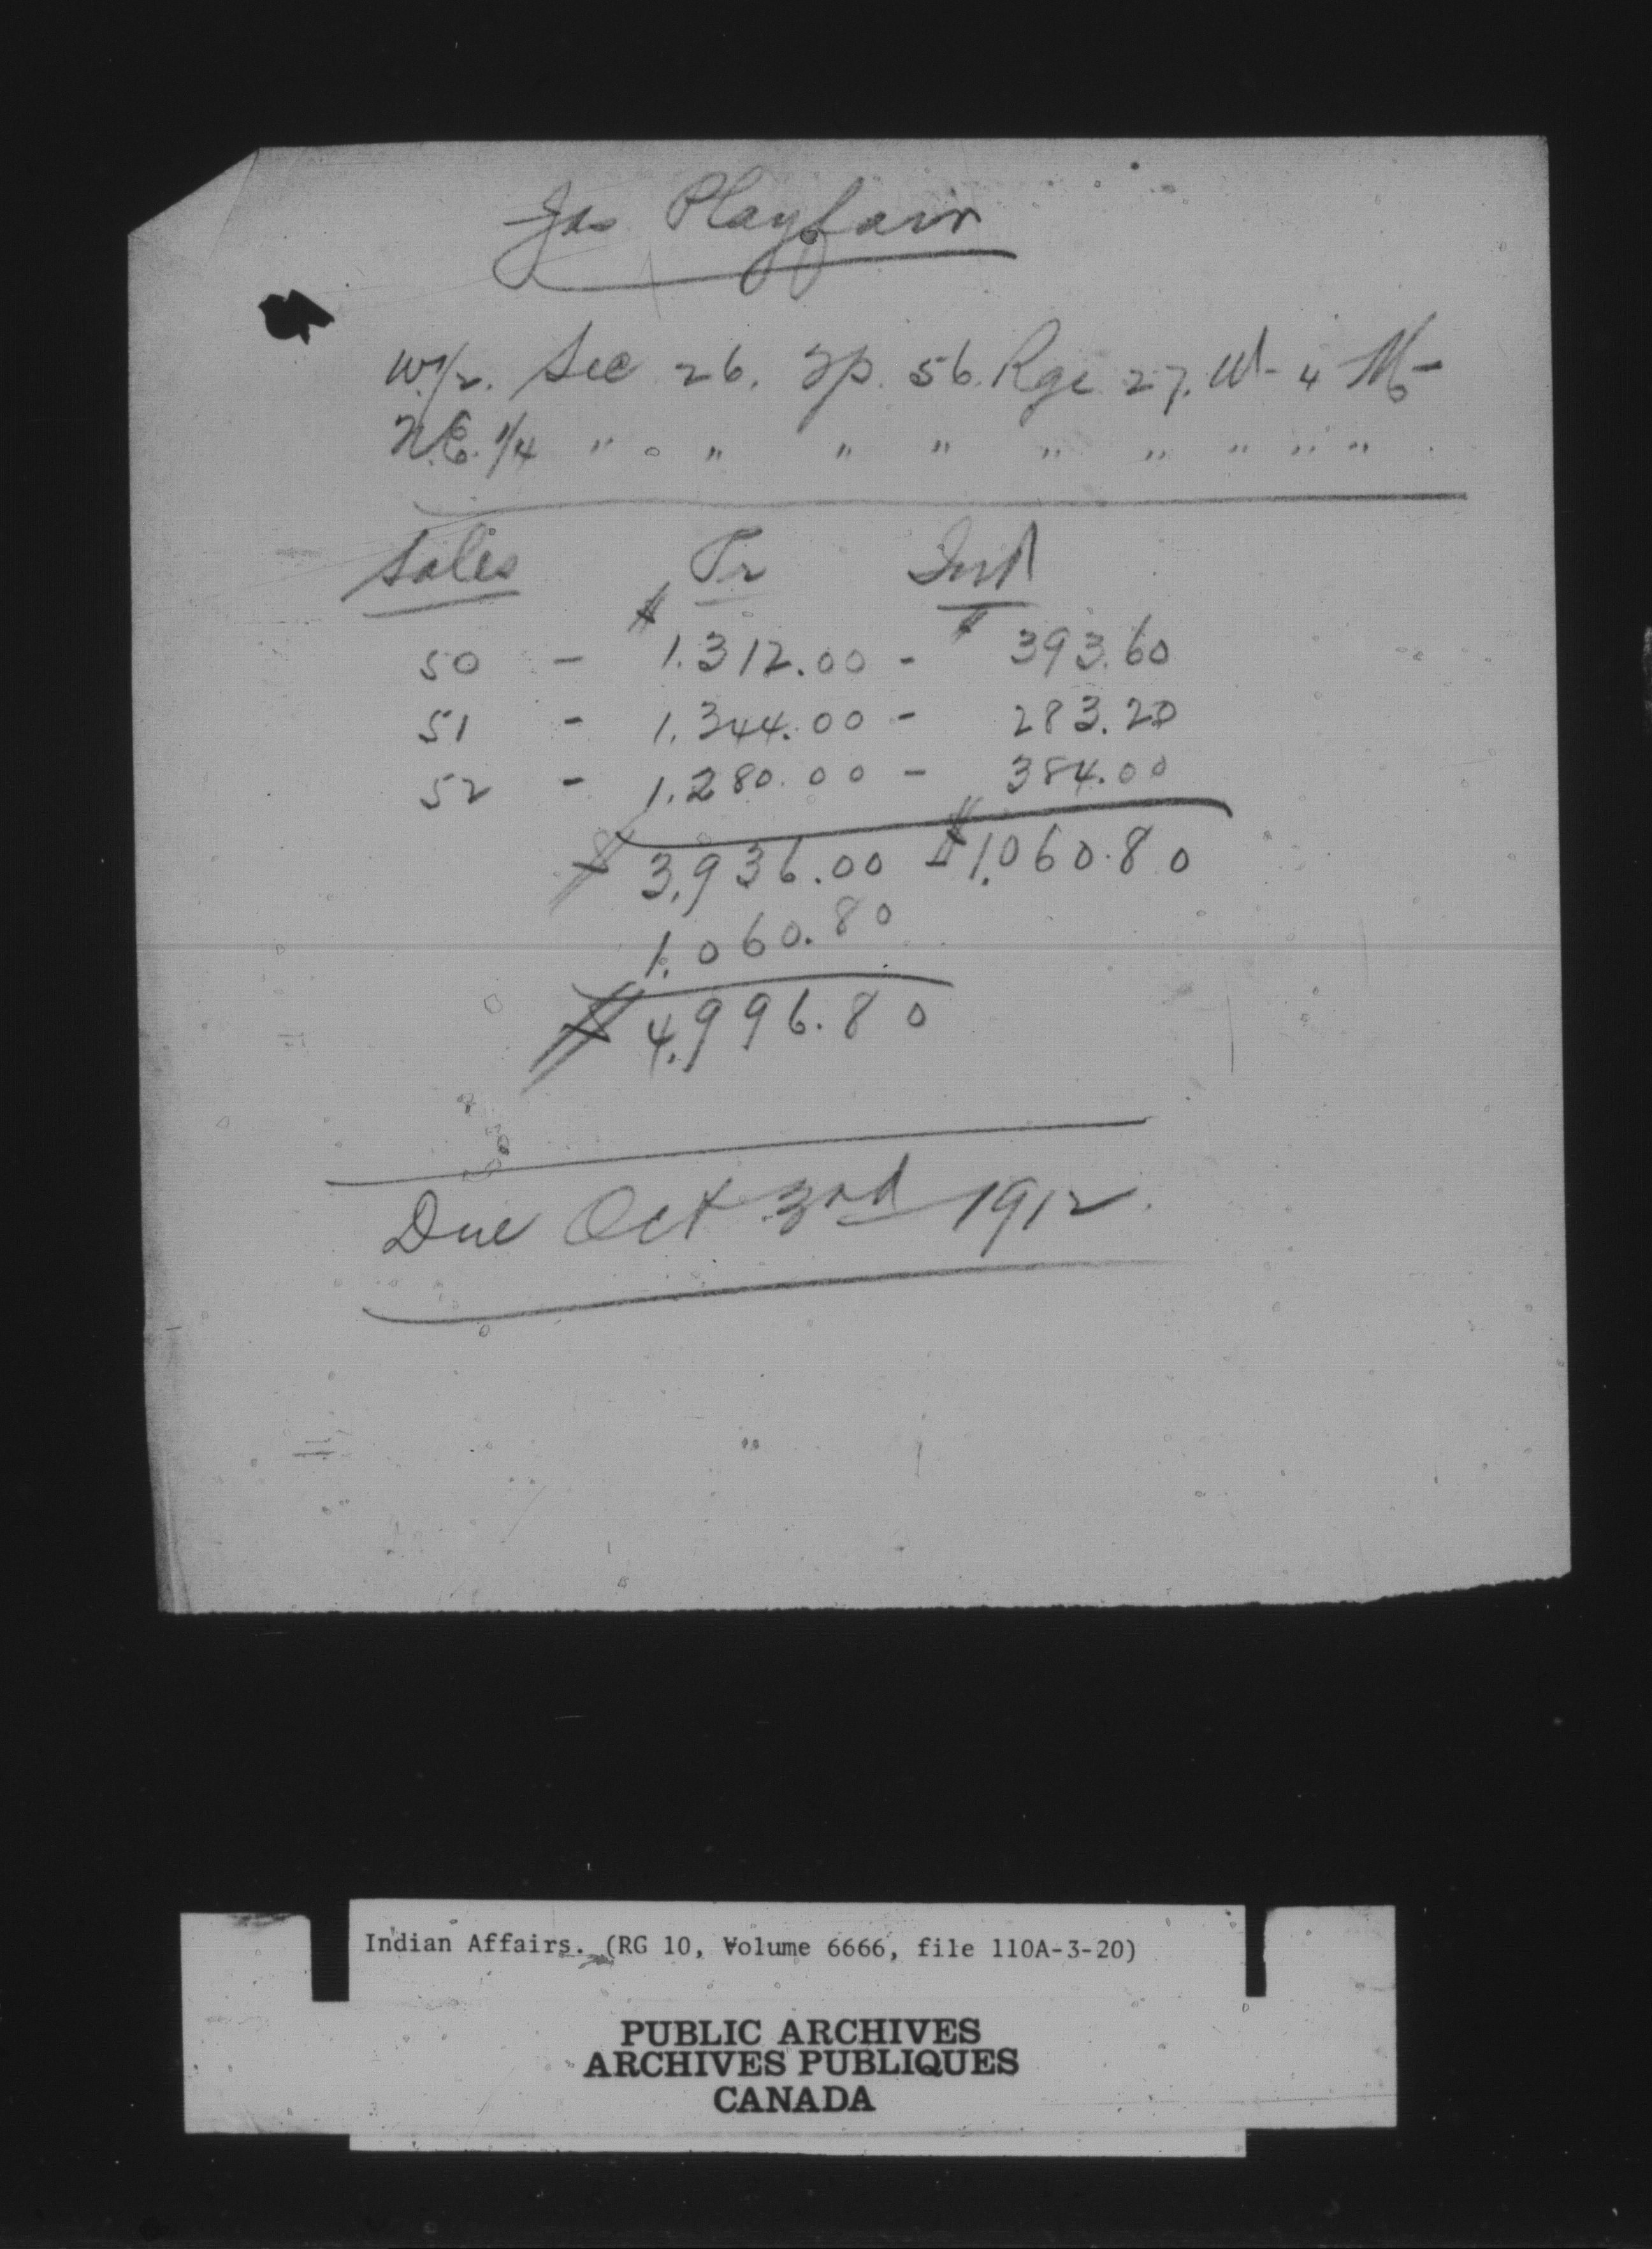 Jas Playfair
W.1/2. Sec 26. Tp. 56. Rge 27. W- 4 M-
N.E. 1/4 " " " " " " " " " "
Sales Pr Int
50 - $1.312.00 - $393.60
51 - 1.344.00 - 283.20
52 - 1.280.00 - 384.00
$3,936.00 $1,060.80
1,060.80
$4,996.80
Due Oct 3rd 1912.
Indian Affairs. (RG 10, Volume 6666, file 110A-3-20)
PUBLIC ARCHIVES
ARCHIVES PUBLIQUES
CANADA